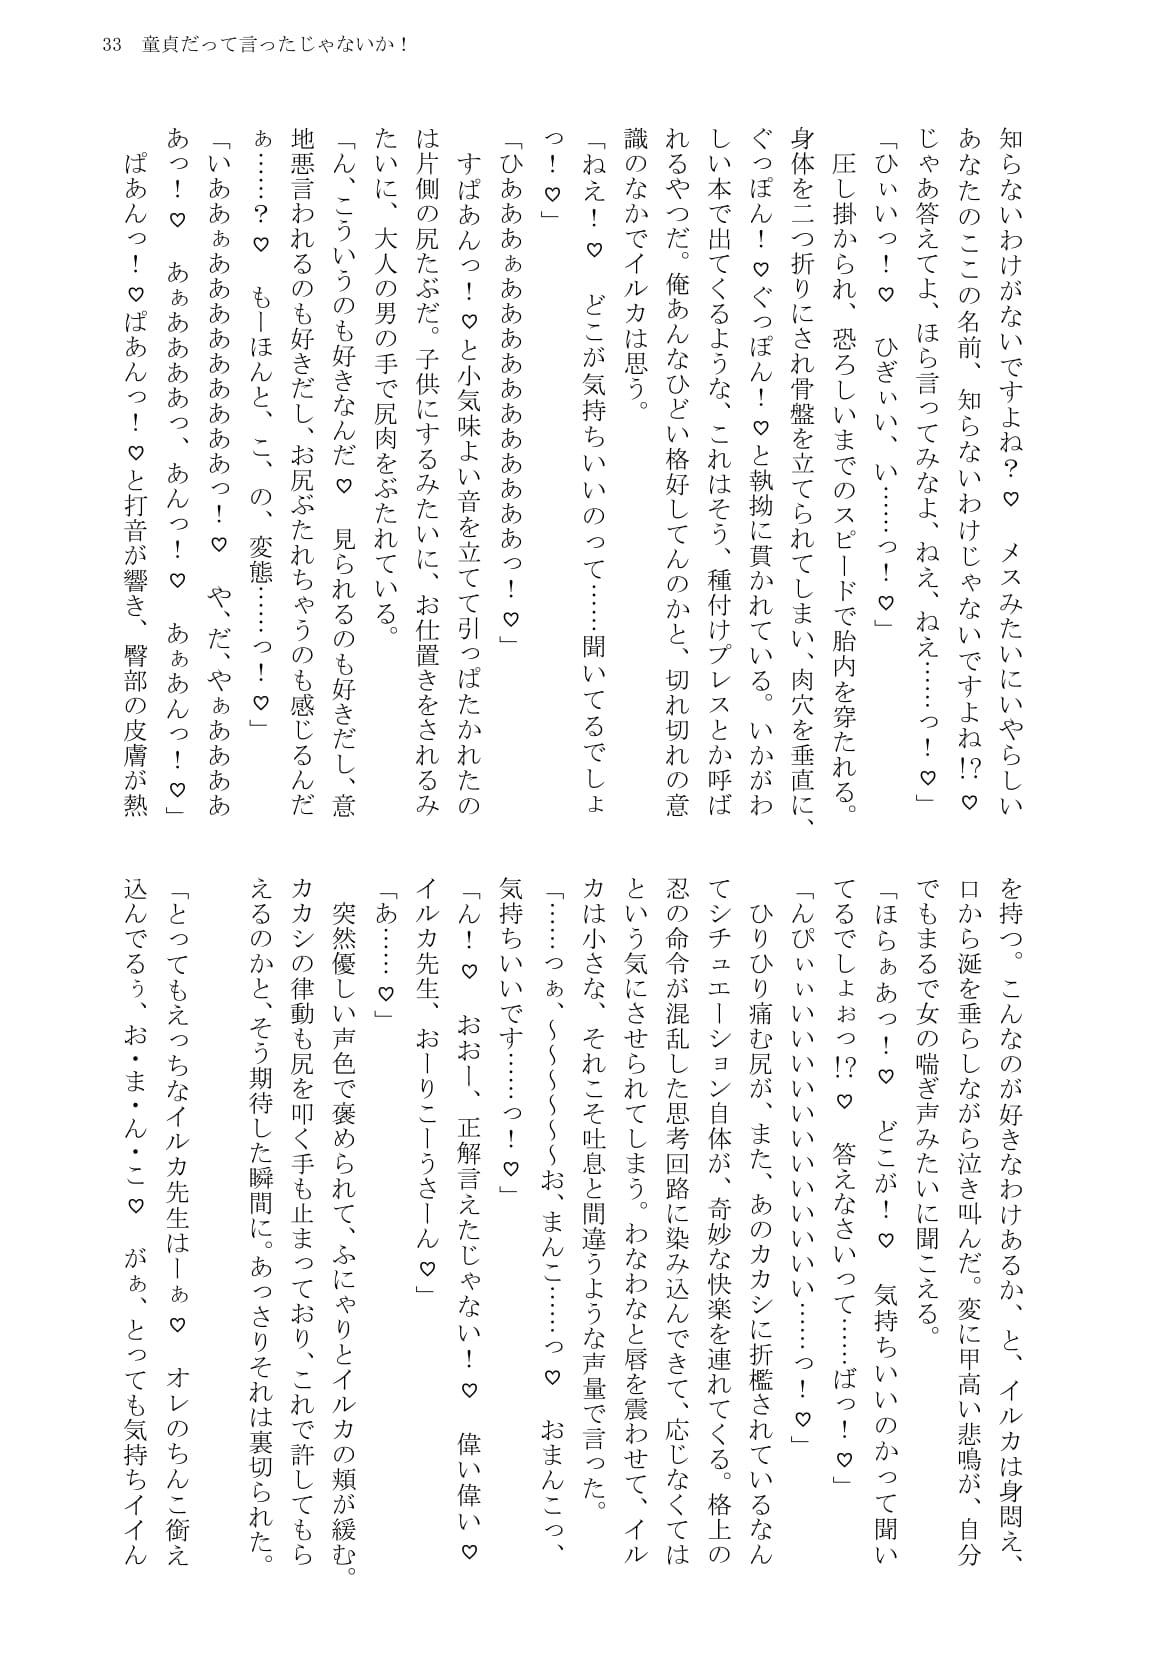 33　童貞だって言ったじゃないか！
知らないわけがないですよね？♡　メスみたいにいやらしい
あなたのここの名前、知らないわけじゃないですよね!?♡
じゃあ答えてよ、ほら言ってみなよ、ねえ、ねえ……っ！♡」
「ひぃいっ！♡　ひぎぃい、い……っ！♡」
　圧し掛かられ、恐ろしいまでのスピードで胎内を穿たれる。
身体を二つ折りにされ骨盤を立てられてしまい、肉穴を垂直に、
ぐっぽん！♡ぐっぽん！♡と執拗に貫かれている。いかがわ
しい本で出てくるような、これはそう、種付けプレスとか呼ば
れるやつだ。俺あんなひどい格好してんのかと、切れ切れの意
識のなかでイルカは思う。
「ねえ！♡　どこが気持ちいいのって……聞いてるでしょ
っ！♡」
「ひあああぁあああああああああああっ！♡」
　すぱあんっ！♡と小気味よい音を立てて引っぱたかれたの
は片側の尻たぶだ。子供にするみたいに、お仕置きをされるみ
たいに、大人の男の手で尻肉をぶたれている。
「ん、こういうのも好きなんだ♡　見られるのも好きだし、意
地悪言われるのも好きだし、お尻ぶたれちゃうのも感じるんだ
ぁ……？♡　もーほんと、こ、の、変態……っ！♡」
「いああぁあああああああああっ！♡　や、だ、やぁああああ
あっ！♡　あぁああああっ、あんっ！♡　あぁあんっ！♡」
　ぱあんっ！♡ぱあんっ！♡と打音が響き、臀部の皮膚が熱
を持つ。こんなのが好きなわけあるか、と、イルカは身悶え、
口から涎を垂らしながら泣き叫んだ。変に甲高い悲鳴が、自分
でもまるで女の喘ぎ声みたいに聞こえる。
「ほらぁあっ！♡　どこが！♡　気持ちいいのかって聞い
てるでしょぉっ!?♡　答えなさいって……ばっ！♡」
「んぴぃぃいいいいいいいいいいいい……っ！♡」
　ひりひり痛む尻が、また、あのカカシに折檻されているなん
てシチュエーション自体が、奇妙な快楽を連れてくる。格上の
忍の命令が混乱した思考回路に染み込んできて、応じなくては
という気にさせられてしまう。わなわなと唇を震わせて、イル
カは小さな、それこそ吐息と間違うような声量で言った。
「……っぁ、〜〜〜〜〜〜お、まんこ……っ♡　おまんこっ、
気持ちいいです……っ！♡」
「ん！♡　おおー、正解言えたじゃない！♡　偉い偉い♡
イルカ先生、おーりこーうさーん♡」
「あ……♡」
　突然優しい声色で褒められて、ふにゃりとイルカの頬が緩む。
カカシの律動も尻を叩く手も止まっており、これで許してもら
えるのかと、そう期待した瞬間に。あっさりそれは裏切られた。
「とってもえっちなイルカ先生はーぁ♡　オレのちんこ銜え
込んでるぅ、お・ま・ん・こ♡　がぁ、とっても気持ちイイん